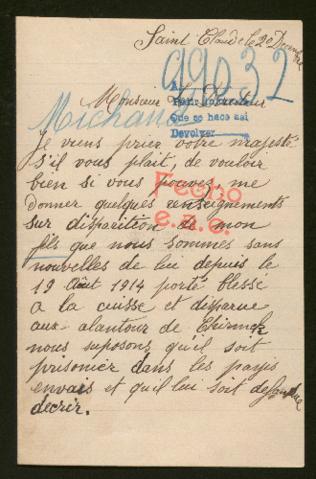 Saint Claude le 20 Decembre
99032
Monsieur Le Directeur
A
Para
Que se haco asi
Devolver
Michaud
Je viens prier votre majesté
S'il vous plait, de vouloir
bien si vous pouvez me
donner quelques renseignements
sur disparition de mon
fils que nous sommes sans
nouvelles de lui depuis le
19 Août 1914 porté blessé
a la cuisse et disparue
aux alantour de
nous suposons qu'il soit
prisonier dans les payis
envais et qu'il lui soit defandue
decrir.
Fecho
e.a.e.